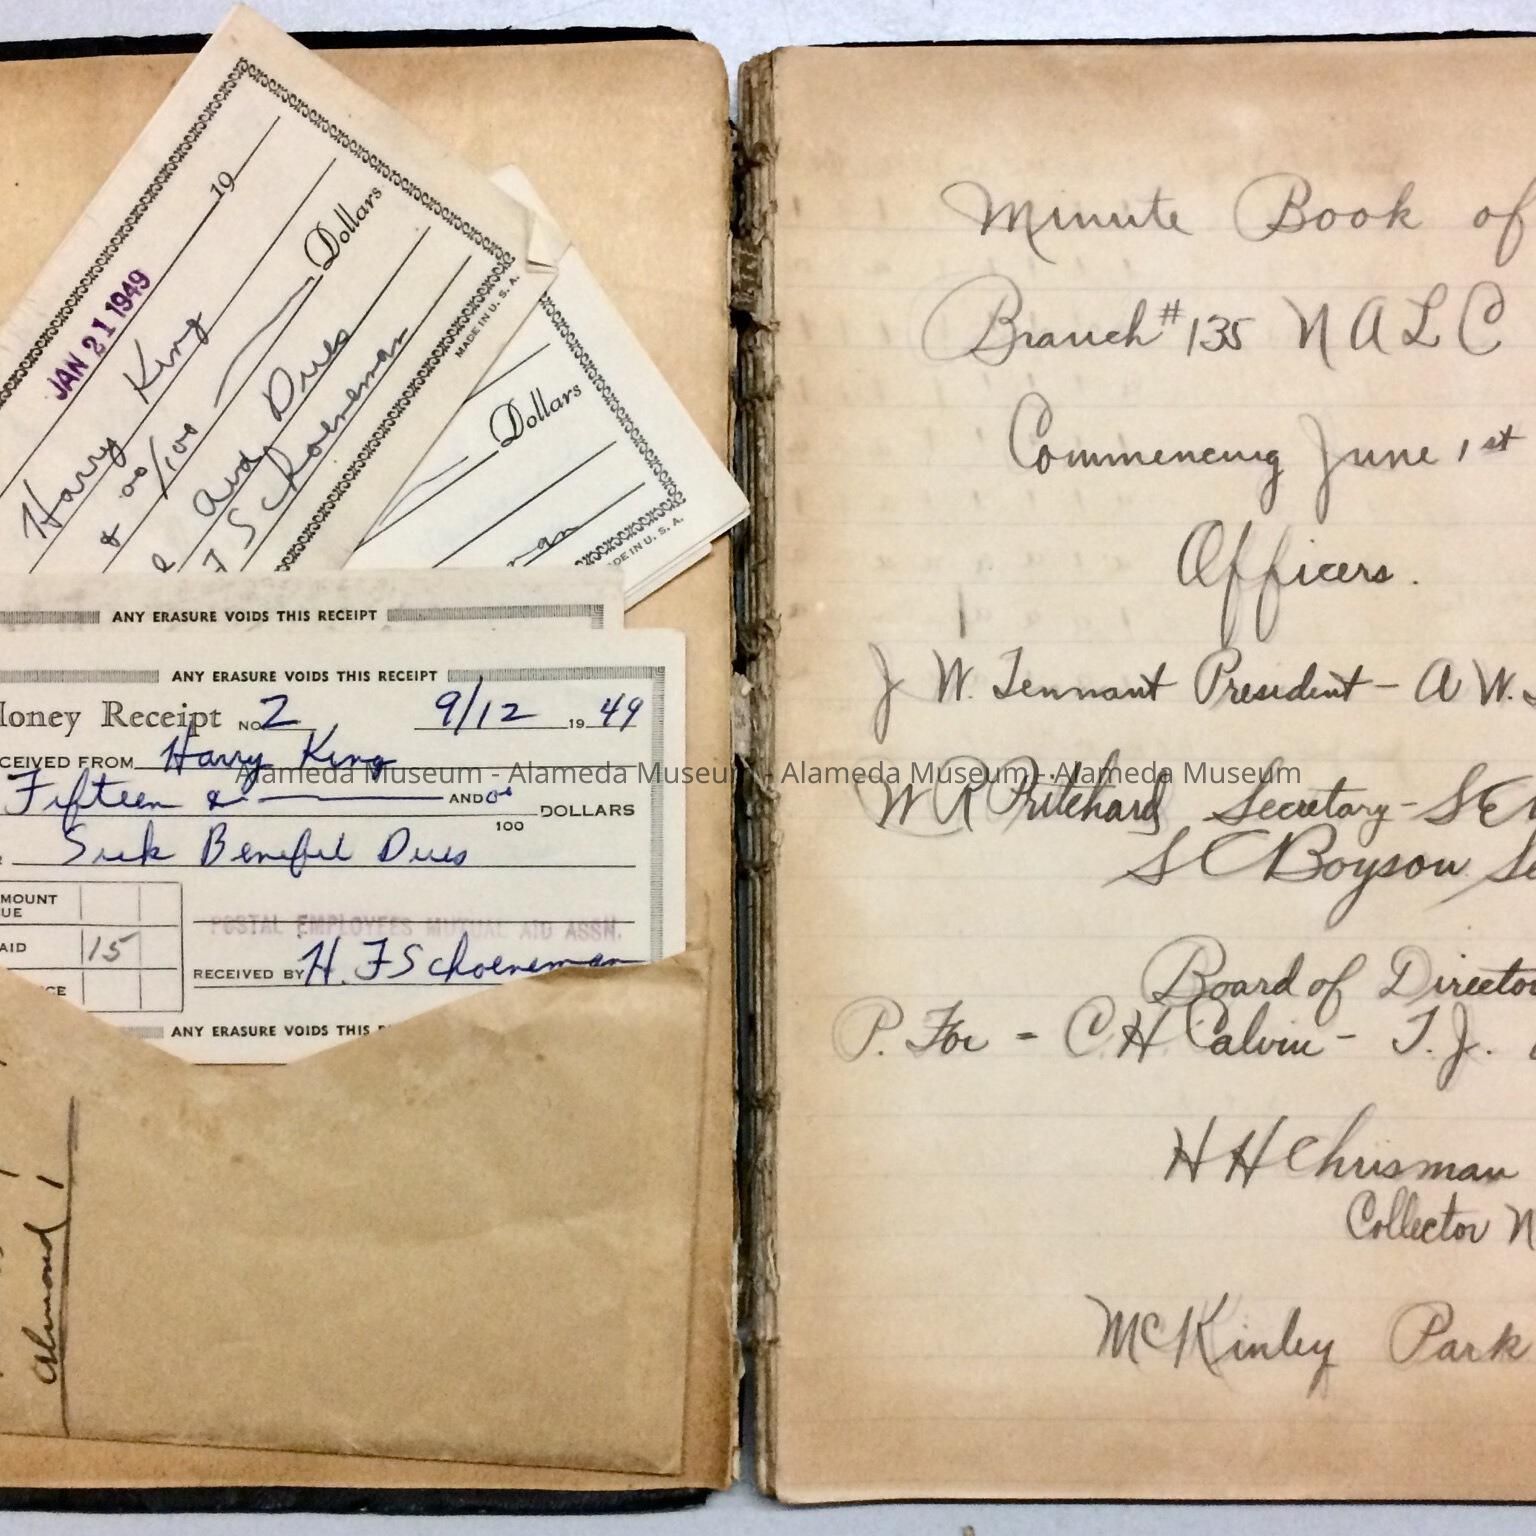 19
JAN 21 1949
Harry King
& 00/100 Dollars
Aid Dues
F Schoeneman
MADE IN U. S. A.
Dollars
MADE IN U. S. A.
ANY ERASURE VOIDS THIS RECEIPT
ANY ERASURE VOIDS THIS RECEIPT
Money Receipt No. 2 9/12 19 49
RECEIVED FROM Harry King
Fifteen & AND 00/100 DOLLARS
Sick Benefit Dues
AMOUNT DUE
POSTAL EMPLOYEES MUTUAL AID ASSN.
PAID 15
RECEIVED BY H. F Schoeneman
ANY ERASURE VOIDS THIS
Almond
Minute Book of
Branch #135 N A L C
Commencing June 1st
Officers.
J W. Tennant President - A W.
Alameda Museum - Alameda Museum - Alameda Museum - Alameda Museum
W R Pritchard Secretary - S E
S C Boyson
Board of Director
P. Foe - C. H Calvin - T. J.
H H Chrisman
Collector N
McKinley Park